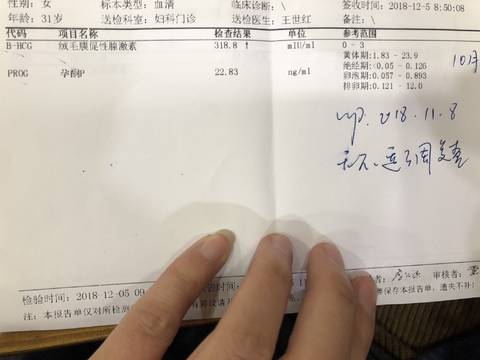 性别: 女 标本类型: 血清 临床诊断: \ 签收时间: 2018-12-5 8:50:08
年龄: 31岁 送检科室: 妇科门诊 送检医生: 王世红 备注: \
代码 项目名称 检查结果 单位 参考范围
B-HCG 绒毛膜促性腺激素 318.8 ↑ mIU/ml 0 - 3
PROG 孕酮P 22.83 ng/ml 黄体期:1.83 - 23.9
绝经期:0.05 - 0.126
卵泡期:0.057 - 0.893
排卵期:0.121 - 12.0
10月
2018.11.8
检验时间: 2018-12-05 09
审核者:
注: 本报告单仅对所检测 保存本报告单,遗失不补!